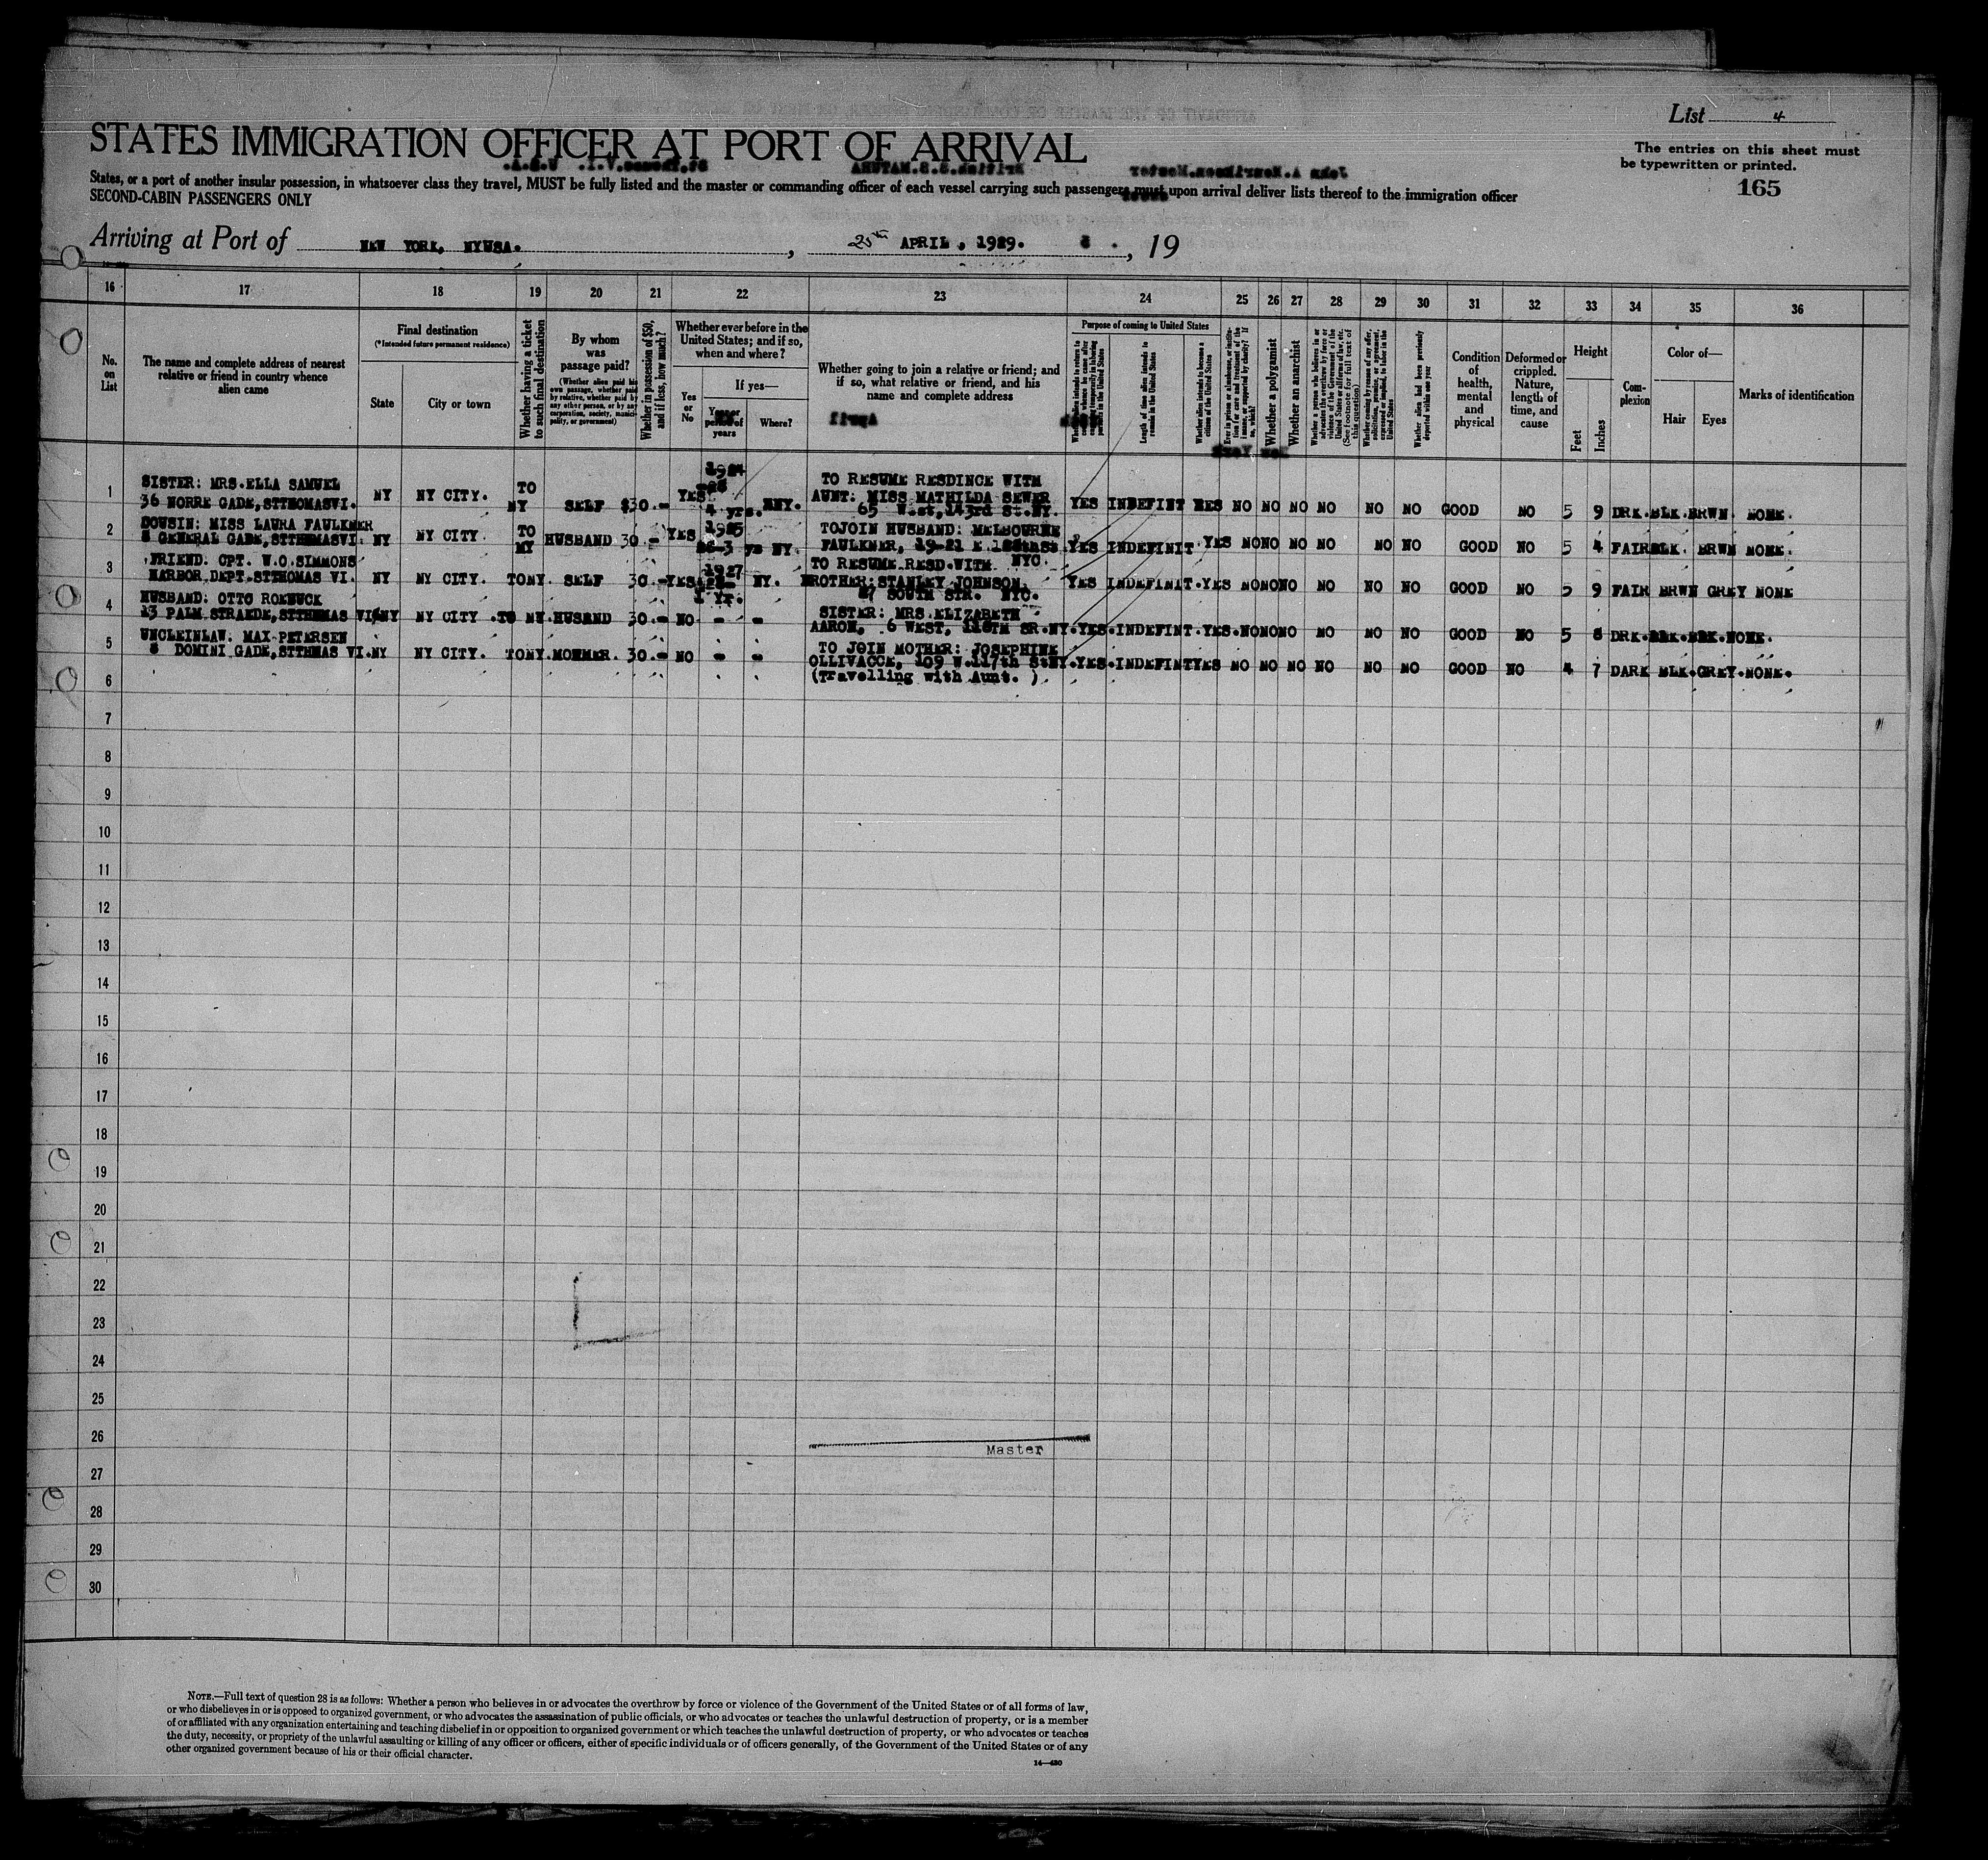 List 4
STATES IMMIGRATION OFFICER AT PORT OF ARRIVAL
The entries on this sheet must
be typewritten or printed.
165
States, or a port of another insular possession, in whatsoever class they travel, MUST be fully listed and the master or commanding officer of each vessel carrying such passengers must upon arrival deliver lists thereof to the immigration officer
SECOND-CABIN PASSENGERS ONLY
Arriving at Port of NEW YORK, NYUSA. , 25th APRIL, 1929. , 19
16 17 18 19 20 21 22 23 24 25 26 27 28 29 30 31 32 33 34 35 36
No. on List
The name and complete address of nearest relative or friend in country whence alien came
Final destination
(*Intended future permanent residence)
State
City or town
Whether having a ticket to such final destination
By whom was passage paid?
(Whether alien paid his own passage, whether paid by relative, whether paid by any other person, or by any corporation, society, municipality, or government)
Whether in possession of $50, and if less, how much?
Whether ever before in the United States; and if so, when and where?
Yes or No
If yes—
Year or period of years
Where?
Whether going to join a relative or friend; and if so, what relative or friend, and his name and complete address
Purpose of coming to United States
Whether alien intends to return to country whence he came after engaging temporarily in laboring pursuits in the United States
Length of time alien intends to remain in the United States
Whether alien intends to become a citizen of the United States
Ever in prison or almshouse, or institution for care and treatment of the insane, or supported by charity? If so, which?
Whether a polygamist
Whether an anarchist
Whether a person who believes in or advocates the overthrow by force or violence of the Government of the United States or all forms of law, etc. (See footnote for full text of this question)
Whether coming by reason of any offer, solicitation, promise, or agreement, expressed or implied, to labor in the United States
Whether alien had been previously deported within one year
Condition of health, mental and physical
Deformed or crippled. Nature, length of time, and cause
Height
Feet
Inches
Complexion
Color of—
Hair
Eyes
Marks of identification
1 SISTER: MRS.ELLA SAMUEL
36 NORRE GADE,STTHOMASVI. NY NY CITY. TO NY SELF $30.- YES 4 yrs. NY. TO RESUME RESDINCE WITH
AUNT: MISS MATHILDA SEWER
65 West,143rd St.NY. YES INDEFINT YES NO NO NO NO NO NO GOOD NO 5 9 DRK.BLK.BRWN. NONE.
2 COUSIN: MISS LAURA FAULKNER
8 GENERAL GADE,STTHOMASVI. NY NY CITY. TO NY HUSBAND 30.- YES 1925 3 ys NY. TOJOIN HUSBAND: MELBOURNE
FAULKNER, 19-21 E YES INDEFINIT. YES NONO NO NO NO NO GOOD NO 5 4 FAIRBLK. BRWN NONE.
3 FRIEND: CPT. W.O.SIMMONS
HARBOR DEPT.STTHOMAS VI. NY NY CITY. TONY. SELF 30.- YES 1927 1 Yr. NY. TO RESUME RESD.WITH NYC.
BROTHER:STANLEY JOHNSON,
SOUTH STR. NYC. YES INDEFINIT.YES NONONO NO NO NO GOOD NO 5 9 FAIR BRWN GREY NONE
4 HUSBAND: OTTO ROEBUCK
13 PALM STRAEDE,STTHOMAS VI. NY NY CITY .TO NY.HUSBAND 30.- NO - - SISTER: MRS.ELIZABETH
AARON, 6 WEST, 116TH SR.NY.YES.INDEFINT.YES.NONONO NO NO NO GOOD NO 5 8 DRK.BLK.BRK.NONE.
5 UNCLEINLAW: MAX PETERSEN
8 DOMINI GADE,STTHMAS VI.NY NY CITY. TONY.MOMMER. 30.- NO - - TO JOIN MOTHER: JOSEPHINE
OLLIVACCE, 109 W.117th StNY.YES.INDEFINTYES NO NO NO NO NO NO GOOD NO 4 7 DARK BLK.GREY.NONE.
(Travelling with Aunt. )
6
7
8
9
10
11
12
13
14
15
16
17
18
19
20
21
22
23
24
25
26
Master
27
28
29
30
NOTE.—Full text of question 28 is as follows: Whether a person who believes in or advocates the overthrow by force or violence of the Government of the United States or of all forms of law,
or who disbelieves in or is opposed to organized government, or who advocates the assassination of public officials, or who advocates or teaches the unlawful destruction of property, or is a member
of or affiliated with any organization entertaining and teaching disbelief in or opposition to organized government or which teaches the unlawful destruction of property, or who advocates or teaches
the duty, necessity, or propriety of the unlawful assaulting or killing of any officer or officers, either of specific individuals or of officers generally, of the Government of the United States or of any
other organized government because of his or their official character.
14—430